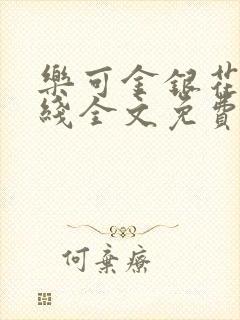 樂可金銀花
綫全文免費
何棄療